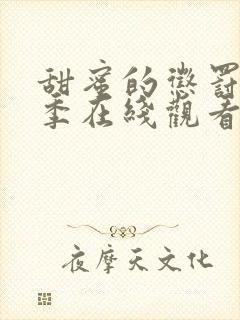 甜蜜的懲罰
季在綫觀看
夜摩天文化